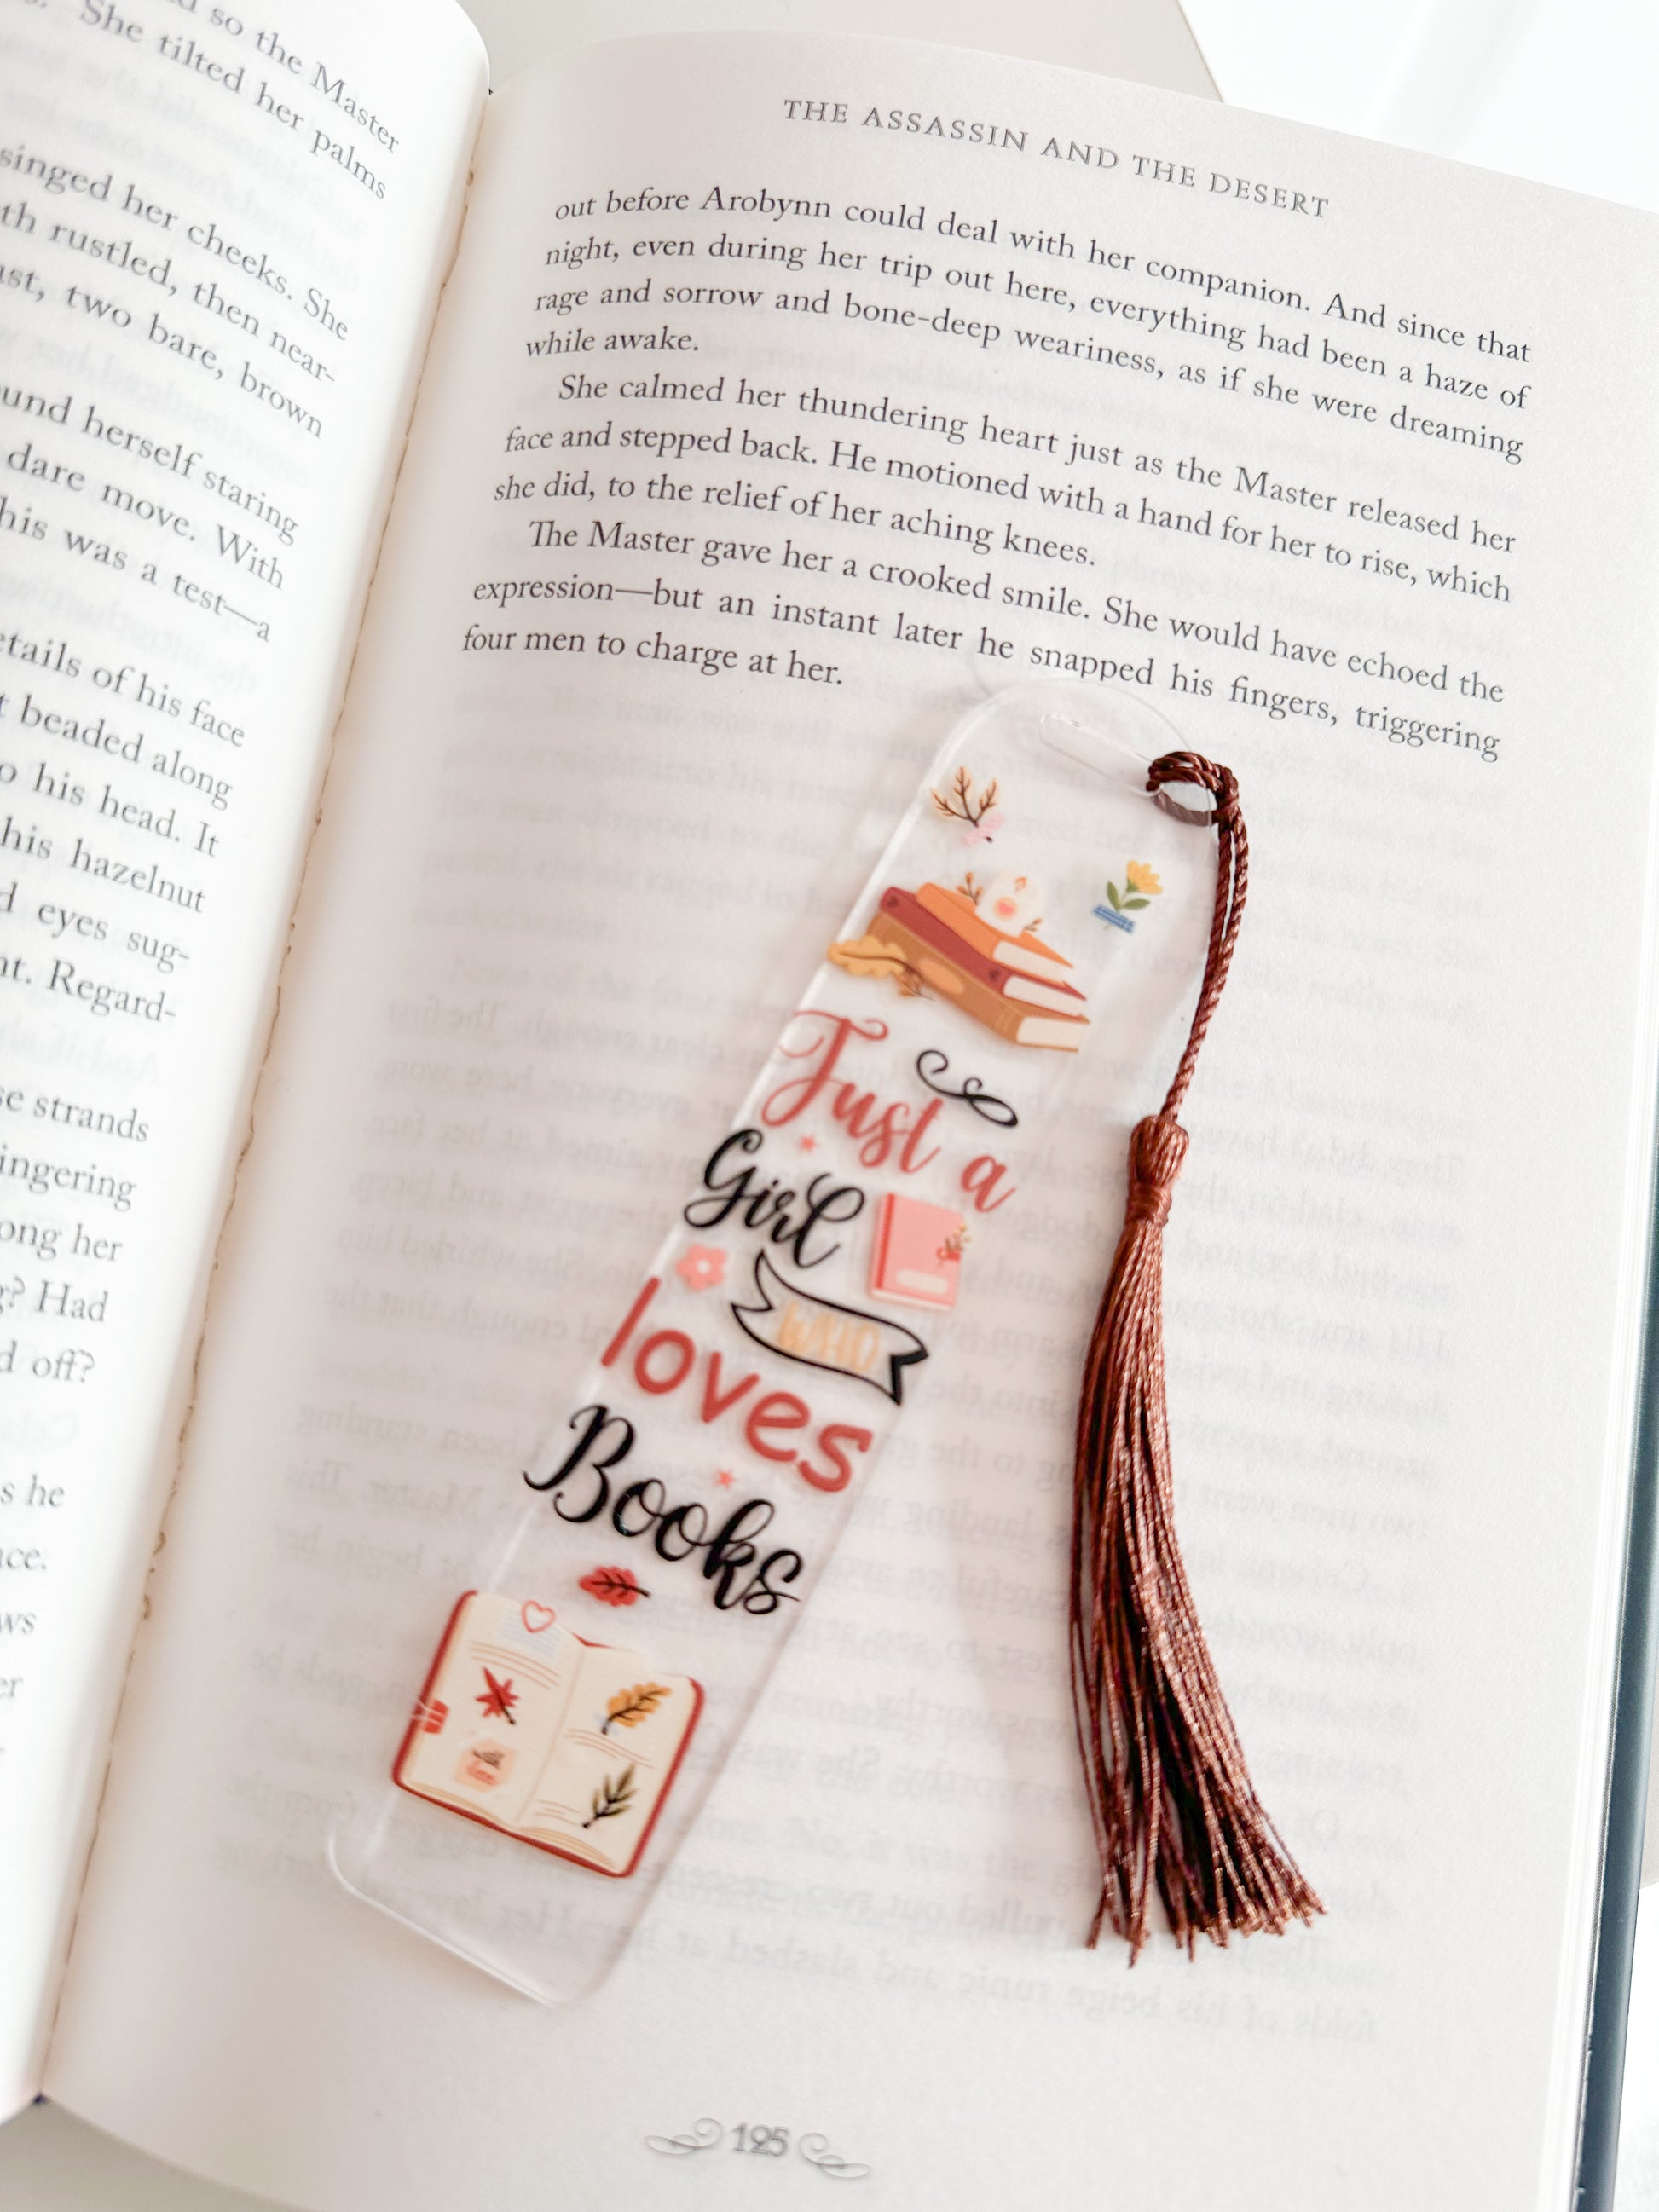 so the Master
She tilted her palms
singed her cheeks. She
th rustled, then near-
ast, two bare, brown
und herself staring
dare move. With
his was a test—a
etails of his face
t beaded along
o his head. It
his hazelnut
d eyes sug-
nt. Regard-
se strands
ingering
ong her
g? Had
d off?
s he
nce.
ws
er
THE ASSASSIN AND THE DESERT
out before Arobynn could deal with her companion. And since that
night, even during her trip out here, everything had been a haze of
rage and sorrow and bone-deep weariness, as if she were dreaming
while awake.
She calmed her thundering heart just as the Master released her
face and stepped back. He motioned with a hand for her to rise, which
she did, to the relief of her aching knees.
The Master gave her a crooked smile. She would have echoed the
expression—but an instant later he snapped his fingers, triggering
four men to charge at her.
Just a
Girl
WHO
loves
Books
125